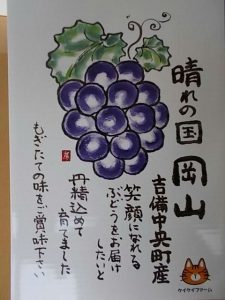 晴れの国 岡山
吉備中央町産
笑顔になれる
ぶどうをお届け
したいと
丹精込めて
育てました
もぎたての味をご賞味下さい
ケイケイファーム